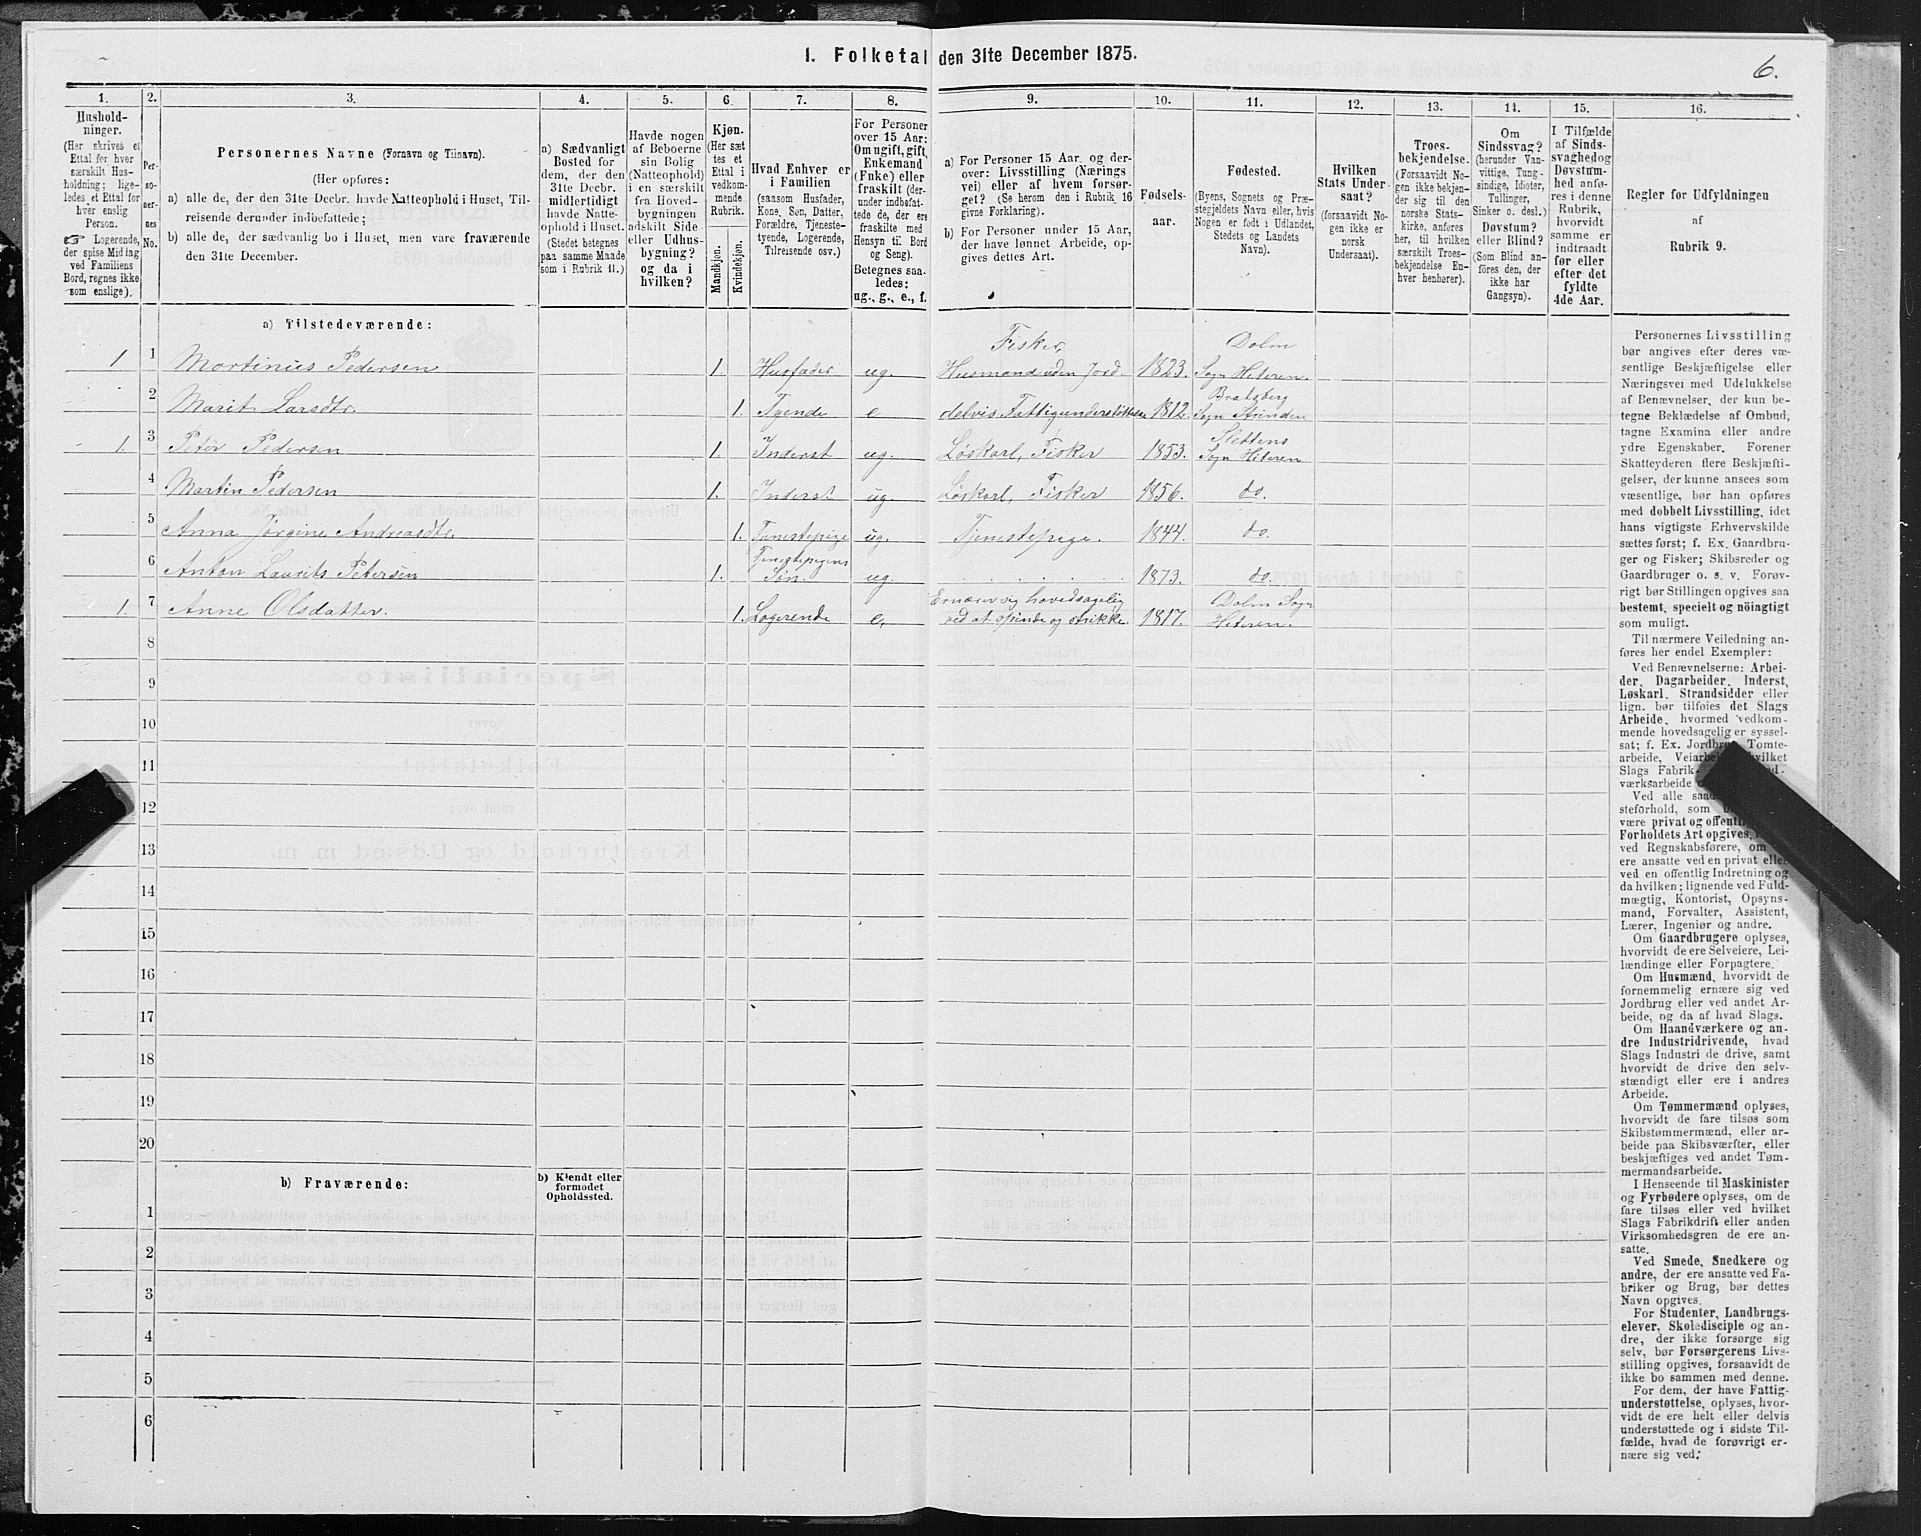 1. Folketal den 31te December 1875.
6.
1.
2.
3.
4.
5.
6.
7.
8.
9.
10.
11.
12.
13.
14.
15.
16.
Hushold-
ninger.
(Her skrives et
Ettal for hver
særskilt Hus-
holdning; lige-
ledes et Ettal for
hver enslig
Person.
☞ Logerende,
der spise Middag
ved Familiens
Bord, regnes ikke
som enslige).
Per-
so-
ner-
nes
No.
Personernes Navne (Fornavn og Tilnavn).
(Her opføres:
a) alle de, der den 31te Decbr. havde Natteophold i Huset, Til-
reisende derunder indbefattede;
b) alle de, der sædvanlig bo i Huset, men vare fraværende
den 31te December.
a) Sædvanligt
Bosted for
dem, der den
31te Decbr.
midlertidigt
havde Natte-
ophold i Huset.
(Stedet betegnes
paa samme Maade
som i Rubrik 11.)
Havde nogen
af Beboerne
sin Bolig
(Natteophold)
i en særskilt
fra Hoved-
bygningen
adskilt Side-
eller Udhus-
bygning?
og da i
hvilken?
Kjøn.
(Her sæt
tes et
Ettal i
vedkom-
mende
Rubrik.
Mandkjøn.
Kvindekjøn.
Hvad Enhver er
i Familien
(saasom Husfader,
Kone, Søn, Datter,
Forældre, Tjeneste-
tyende, Logerende,
Tilreisende osv.)
For Personer
over 15 Aar:
Om ugift, gift,
Enkemand
(Enke) eller
fraskilt (der-
under indbefat-
tede de, der ere
fraskilte med
Hensyn til Bord
og Seng).
Betegnes saa-
ledes:
ug., g., e., f.
a) For Personer 15 Aar og der-
over: Livsstilling (Nærings
vei) eller af hvem forsør-
get? (Se herom den i Rubrik 16
givne Forklaring).
b) For Personer under 15 Aar,
der have lønnet Arbeide, op-
gives dettes Art.
Fødsels-
aar.
Fødested.
(Byens, Sognets og Præ-
stegjeldets Navn eller, hvis
Nogen er født i Udlandet,
Stedets og Landets
Navn).
Hvilken
Stats Under-
saat?
(forsaavidt No-
gen ikke er
norsk
Undersaat).
Troes-
bekjendelse.
(Forsaavidt No-
gen ikke bekjen-
der sig til den
norske Stats-
kirke, anføres
her, til hvilken
særskilt Troes-
bekjendelse En-
hver henhører).
Om
Sindssvag?
(herunder Van-
vittige, Tung-
sindige, Idioter,
Tullinger,
Sinker o. desl.)
Døvstum?
eller Blind?
(Som Blind an-
føres den, der
ikke har
Gangsyn).
I Tilfælde
af Sinds-
svaghed og
Døvstum-
hed anfø-
res i denne
Rubrik,
hvorvidt
samme er
indtraadt
før eller
efter det
fyldte
4de Aar.
Regler for Udfyldningen
af
Rubrik 9.
a) Tilstedeværende:
1 1 Martinus Pedersen 1. Husfader ug. Fisker, Husmand uden Jord. 1823. Dolm Sogn Hiteren.
2 Marit Larsdtr. 1. Tyende e delvis Fattigunderstøttelse 1812. Bratsberg Sogn Strinden
1. 3 Peter Pedersen 1. Inderst ug. Løskarl, Fisker 1853. Slettens Sogn Hiteren
4 Martin Pedersen 1. Inderst ug. Løskarl, Fisker 1856. do.
5 Anna Jørgine Andreasdtr. 1. Tjenestepige ug. Tjenestepige. 1844. do.
6 Anton Laurits Petersen 1. Tjenestepigens Søn ug. 1873. do.
1. 7 Anne Olsdatter. 1. Logerende e. Ernærer sig hovedsagelig ved at spinde og strikke. 1817. Dolm Sogn Hiteren.
8
9
10
11
12
13
14
15
16
17
18
19
20
b) Fraværende:
b) Kjendt eller
formodet
Opholdssted.
1
2
3
4
5
6
Personernes Livsstilling
bør angives efter deres væ-
sentlige Beskjæftigelse eller
Næringsvei med Udelukkelse
af Benævnelser, der kun be-
tegne Beklædelse af Ombud,
tagne Examina eller andre
ydre Egenskaber. Forener
Skatteyderen flere Beskjæfti-
gelser, der kunne ansees som
væsentlige, bør han opføres
med dobbelt Livsstilling, idet
hans vigtigste Erhvervskilde
sættes først; f. Ex. Gaardbru-
ger og Fisker; Skibsreder og
Gaardbruger o. s. v. Forøv-
rigt bør Stillingen opgives saa
bestemt, specielt og nöiagtigt
som muligt.
Til nærmere Veiledning an-
føres her endel Exempler:
Ved Benævnelserne: Arbei-
der, Dagarbeider, Inderst,
Løskarl, Strandsidder eller
lign. bør tilføies det Slags
Arbeide, hvormed vedkom-
mende hovedsagelig er syssel-
sat; f. Ex. Jordbrug, Tomte-
arbeide, Veiarbeide, hvilket
Slags Fabrik-
værksarbeide
Ved alle
steforhold, som
være privat og offentlig
Forholdets Art opgives,
ved Regnskabsførere, om
ere ansatte ved en privat eller
ved en offentlig Indretning og
da hvilken; lignende ved Fuld-
mægtig, Kontorist, Opsyns-
mand, Forvalter, Assistent,
Lærer, Ingeniør og andre.
Om Gaardbrugere oplyses,
hvorvidt de ere Selveiere, Lei-
lændinge eller Forpagtere.
Om Husmænd, hvorvidt de
fornemmelig ernære sig ved
Jordbrug eller ved andet Ar-
beide, og da af hvad Slags.
Om Haandværkere og an-
dre Industridrivende, hvad
Slags Industri de drive, samt
hvorvidt de drive den selv-
stændigt eller ere i andres
Arbeide.
Om Tømmermænd oplyses,
hvorvidt de fare tilsøs som
Skibstømmermænd, eller ar-
beide paa Skibsværfter, eller
beskjæftiges ved andet Tøm-
mermandsarbeide.
I Henseende til Maskinister
og Fyrbødere oplyses, om de
fare tilsøs eller ved hvilket
Slags Fabrikdrift eller anden
Virksomhedsgren de ere an-
satte.
Ved Smede, Snedkere og
andre, der ere ansatte ved Fa-
briker og Brug, bør dettes
Navn opgives.
For Studenter, Landbrugs-
elever, Skoledisciple og an-
dre, der ikke forsørge sig
selv, bør Forsørgerens Livs-
stilling opgives, forsaavidt de
ikke bo sammen med denne.
For dem, der have Fattig-
understøttelse, oplyses, hvor-
vidt de ere helt eller delvis
understøttede og i sidste Til-
fælde, hvad de forøvrigt er-
nære sig ved.